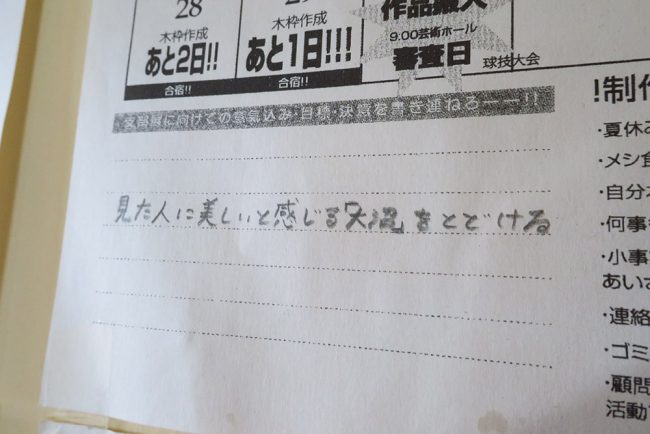 28
木枠作成
あと2日!!
合宿!!
木枠作成
あと1日!!!
合宿!!
作品搬入
9:00芸術ホール
審査日
球技大会
支部展に向けての意気込み・目標・決意を書き連ねろーー!!
見た人に美しいと感じる「大混」をとどける
!制作
・夏休み
・メシ食
・自分
・何事も
・小事
あいさ
・連絡
・ゴミ
・顧問
活動